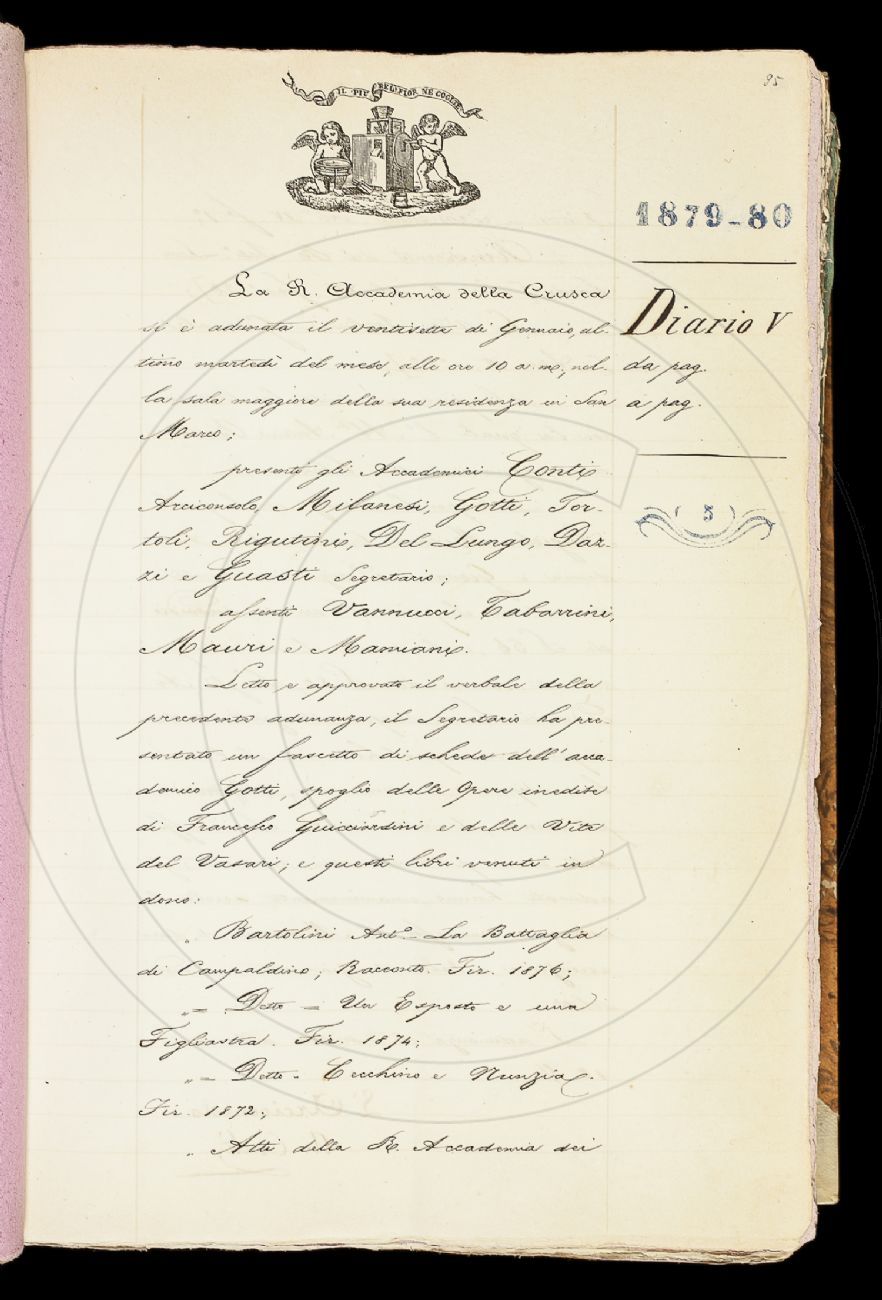 IL PIÙ BEL FIOR NE COGLIE
95
1879-80
Diario V
da pag.
a pag.
5
La R. Accademia della Crusca
si è adunata il ventisette di Gennaio, ul-
timo martedì del mese, alle ore 10 a. m., nel-
la sala maggiore della sua residenza in San
Marco;
presenti gli Accademici Conti
Arciconsolo, Milanesi, Gotti, Tor-
toli, Rigutini, Del Lungo, Daz-
zi e Guasti Segretario;
assenti Vannucci, Tabarrini,
Mauri e Mamiani.
Letto e approvato il verbale della
precedente adunanza, il Segretario ha pre-
sentato un fascetto di schede dell'acca-
demico Gotti, spoglio delle Opere inedite
di Francesco Guicciardini e delle Vite
del Vasari; e questi libri venuti in
dono:
„ Bartolini Ant.º - La Battaglia
di Campaldino; Racconto. Fir. 1876;
„ = Detto = Un Esposto e una
Figliastra. Fir. 1874;
„ = Detto - Cecchino e Nunzia.
Fir. 1872;
„ Atti della R. Accademia dei